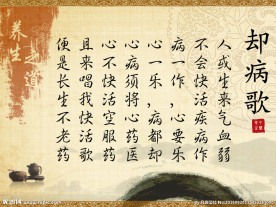 却病歌
人或生来气血弱
不会快活疾病作
病一作,心要乐
心一乐,病都却
心病须将心药医
心不快活空服药
且来唱我快活歌
便是长生不老药
养生
昵图网